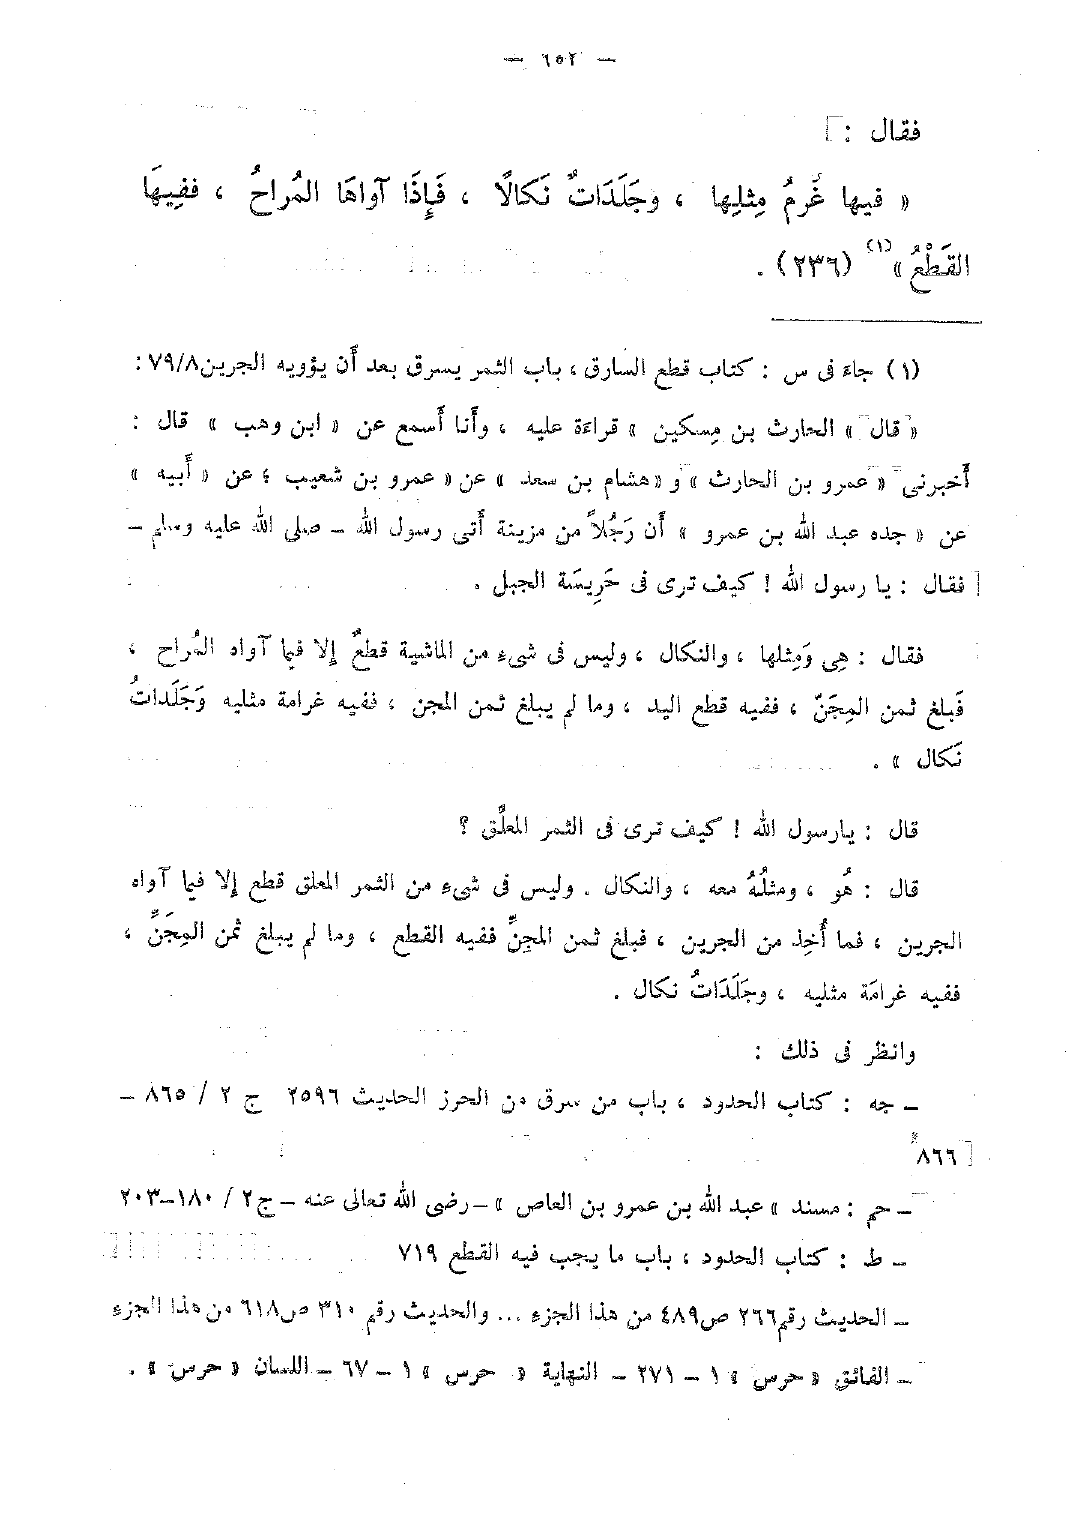 — ٦٥٢ —
فقال : [
« فيها غُرمُ مِثلِها ، وجَلَدَاتٌ نَكالًا ، فَإِذَا آواهَا المُراحُ ، ففِيهَا
القَطْعُ » (١) (٢٣٦) .
(١) جاء فى س : كتاب قطع السارق ، باب الثمر يسرق بعد أَن يؤويه الجرين ٧٩/٨ :
« قال » الحارث بن مِسكين » قراءة عليه ، وأَنا أَسمع عن « ابن وهب » قال :
أَخبرنى « عمرو بن الحارث » و « هشام بن سعد » عن « عمرو بن شعيب ، عن « أَبيه »
عن « جده عبد الله بن عمرو » أَن رَجُلاً من مزينة أَتى رسول الله – صلى الله عليه وسلم –
[ فقال : يا رسول الله ! كيف ترى فى حَرِيسَة الجبل .
فقال : هِى وَمِثلها ، والنكال ، وليس فى شىء من الماشية قطعٌ إِلا فيما آواه المُراح ،
فَبلغ ثمن المِجَنّ ، ففيه قطع اليد ، وما لم يبلغ ثمن المجن ، ففيه غرامة مثليه وَجَلَداتُ
نَكال » .
قال : يارسول الله ! كيف ترى فى الثمر المعلَّق ؟
قال : هُو ، ومثلُهُ معه ، والنكال . وليس فى شىء من الثمر المعلق قطع إِلا فيما آواه
الجرين ، فما أُخِذ من الجرين ، فبلغ ثمن المجنِّ ففيه القطع ، وما لم يبلغ ثمن المِجَنِّ ،
ففيه غرامَة مثليه ، وجَلَدَاتُ نكال .
وانظر فى ذلك :
– جه : كتاب الحدود ، باب من سرق من الحرز الحديث ٢٥٩٦ ج ٢ / ٨٦٥ –
[ ٨٦٦
– حم : مسند « عبد الله بن عمرو بن العاص » – رضى الله تعالى عنه – ج٢ / ١٨٠–٢٠٣
– ط : كتاب الحدود ، باب ما يجب فيه القطع ٧١٩
– الحديث رقم ٢٦٦ ص٤٨٩ من هذا الجزء ... والحديث رقم ٣١٠ ص٦١٨ من هذا الجزء
– الفائق « حرس » ١ – ٢٧١ – النهاية « حرس » ١ – ٦٧ – اللسان « حرس » .